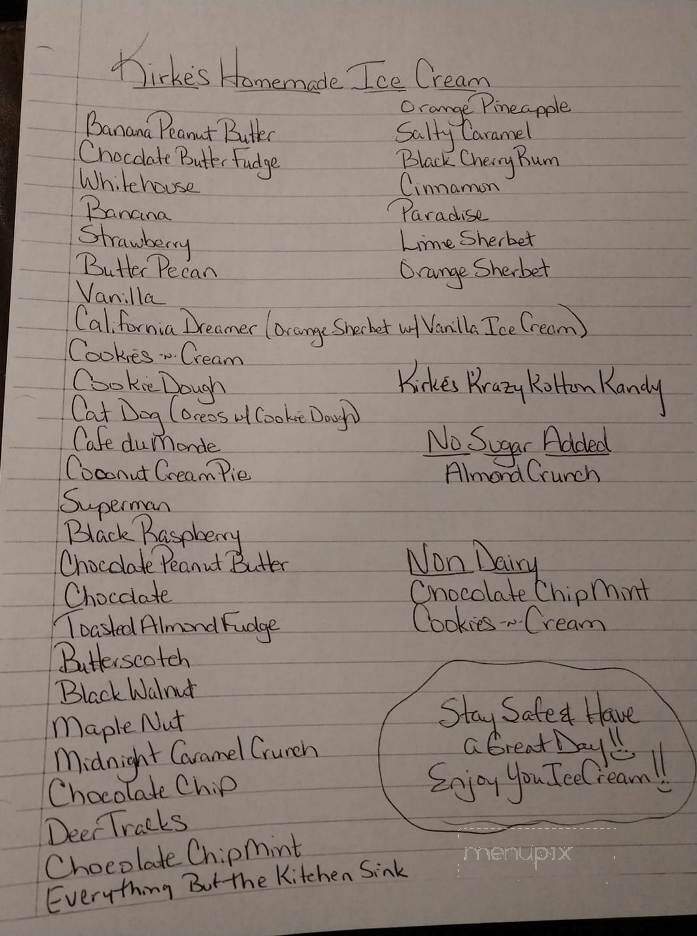 Kirke's Homemade Ice Cream
Banana Peanut Butter
Chocolate Butter Fudge
Whitehouse
Banana
Strawberry
Butter Pecan
Vanilla
California Dreamer (Orange Sherbet w/ Vanilla Ice Cream)
Cookies ~n~ Cream
Cookie Dough
Cat Dog (Oreos w/ Cookie Dough)
Cafe du Monde
Coconut Cream Pie
Superman
Black Raspberry
Chocolate Peanut Butter
Chocolate
Toasted Almond Fudge
Butterscotch
Black Walnut
Maple Nut
Midnight Caramel Crunch
Chocolate Chip
Deer Tracks
Chocolate Chip Mint
Everything But the Kitchen Sink
Orange Pineapple
Salty Caramel
Black Cherry Rum
Cinnamon
Paradise
Lime Sherbet
Orange Sherbet
Kirke's Krazy Kotton Kandy
No Sugar Added
Almond Crunch
Non Dairy
Chocolate Chip Mint
Cookies ~n~ Cream
Stay Safe & Have
a Great Day!!
Enjoy You Ice Cream!!
menupix